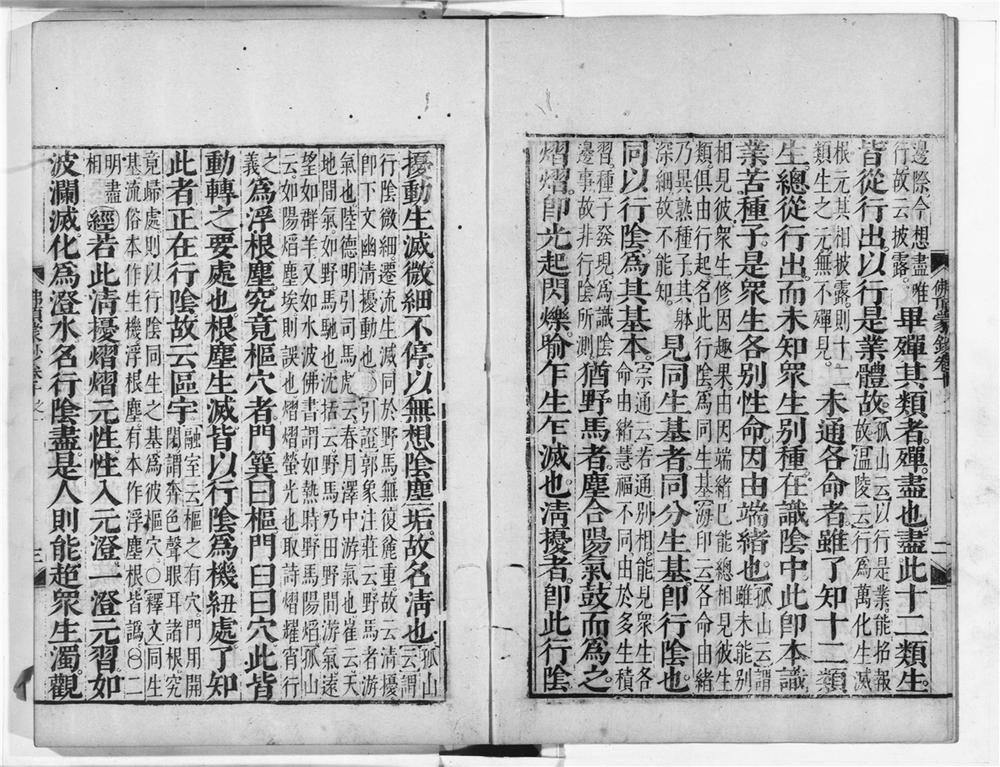 邊際今想盡唯
行故云披露。
畢殫其類者殫盡也盡此十二類生
皆從行出以行是業體故
孤山云以行是業能招報
故溫陵云行為萬化生滅
根元其相披露則十二
類生之元無不殫見。
未通各命者雖了知十二類
生總從行出而未知眾生別種在識陰中此即本識
業苦種子是眾生各別性命因由端緒也
孤山云謂
雖未能別
相見彼眾生修因趣果由因端緒已能總相見彼生
類俱由行起名此行陰為同生基印云各命由緒
乃異熟種子其躰
深細故不能知。
見同生基者同分生基即行陰也
同以行陰為其基本
宗通云若通別相能見眾生各
命由緒慧福不同由於多生積
習種子發現為識陰
邊事故非行陰所測
猶野馬者塵合陽氣鼓而為之
熠熠即光起閃爍喻乍生乍滅也清擾者即此行陰
佛頂蒙鈔卷十
二
擾動生滅微細不停以無想陰塵垢故名清也
孤山
云謂
行陰微細遷流生滅同於野馬無復麁重故云清擾
即下文幽清擾動也引證郭象注莊云野馬者游
氣也陸德明引司馬彪云春月澤中游氣也崔云天
地間氣如野馬馳也沈括云野馬乃田野間游氣遠
望如群羊又如水波佛書謂如熱時野馬陽焰孤山
云如陽焰塵埃則誤也熠熠螢光也取詩熠耀宵行
之
義
為浮根塵究竟樞穴者門簨曰樞門臼曰穴此皆
動轉之要處也根塵生滅皆以行陰為機紐處了知
此者正在行陰故云區宇
融室云樞之有穴門用開
闔謂奔色聲眼耳諸根究
竟歸處則以行陰同生之基為彼樞穴○釋文同生
基流俗本作生機浮根塵有本作浮塵根皆譌二
明盡
相
經若此清擾熠熠元性性入元澄一澄元習如
波瀾滅化為澄水名行陰盡是人則能超眾生濁觀
佛頂蒙鈔卷十之一
三